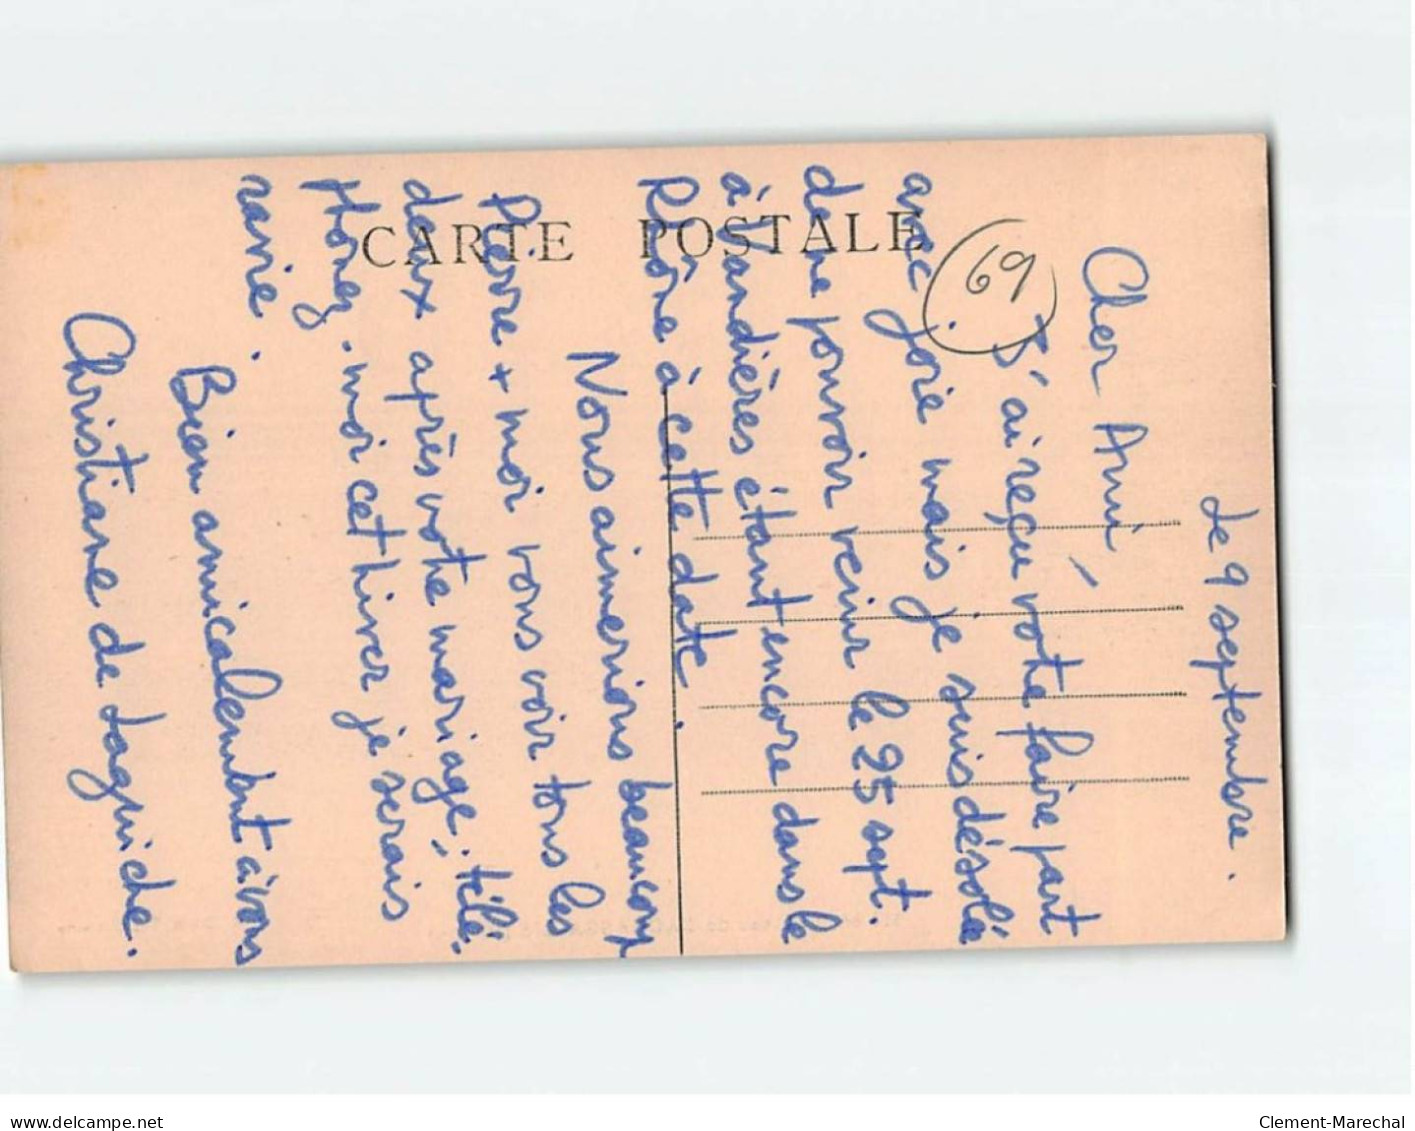 CARTE POSTALE
69
Le 9 septembre.
Cher Ami,
J'ai reçu votre faire part
avec joie mais je suis désolée
de ne pouvoir venir le 25 sept.
à Vandières étant encore dans le
Rhône à cette date.
Nous aimerions beaucoup
Pierre + moi vous voir tous les
deux après votre mariage, télé.
phonez-moi cet hiver je serais
ravie.
Bien amicalement à vous
Christiane de Laguiche.
www.delcampe.net
Clement-Marechal